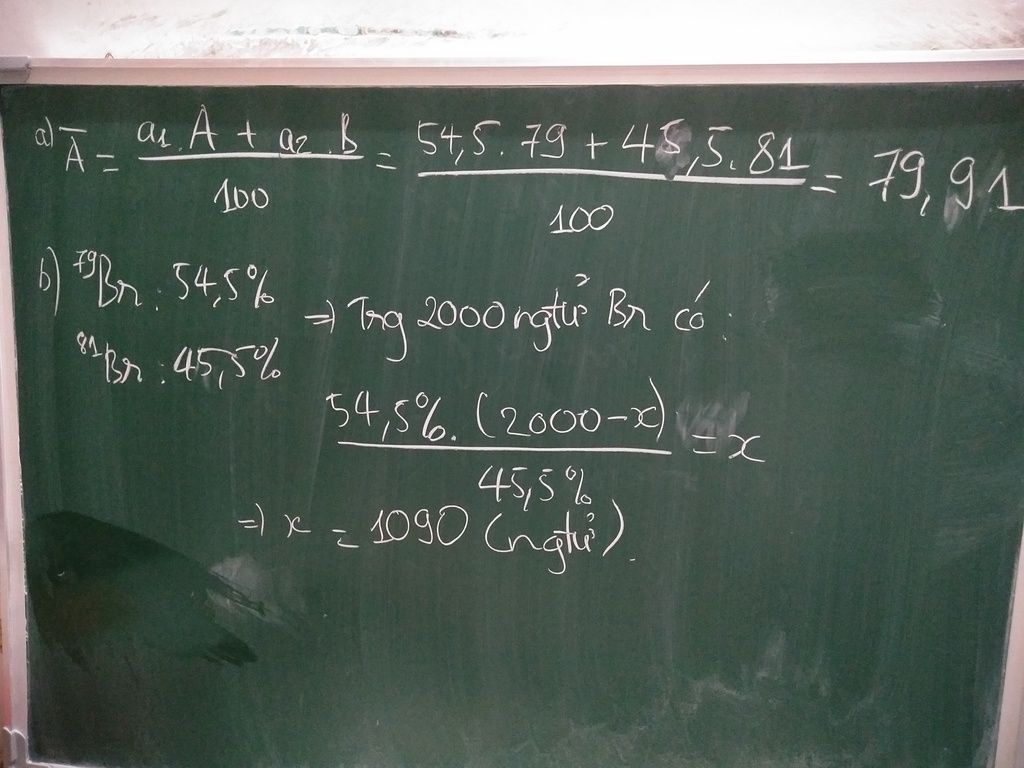 a) A̅ = (a₁.A + a₂.B)/100 = (54,5.79 + 45,5.81)/100 = 79,91
b) ⁷⁹Br : 54,5%
⁸¹Br : 45,5%
=> Trg 2000 ngtử Br có :
54,5%.(2000-x)/45,5% = x
=> x = 1090 (ngtử).